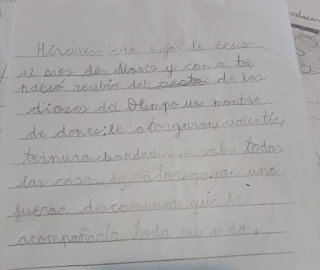 Hércules era hijo de Zeus
el dios de dioses y como tal
nació recibió del resto de los
dioses del Olimpo un montón
de dones: le otorgaron valentía,
ternura bondad sobre todas
las cosas le otorgaron una
fuerza descomunal que le
acompañaría toda su vida.